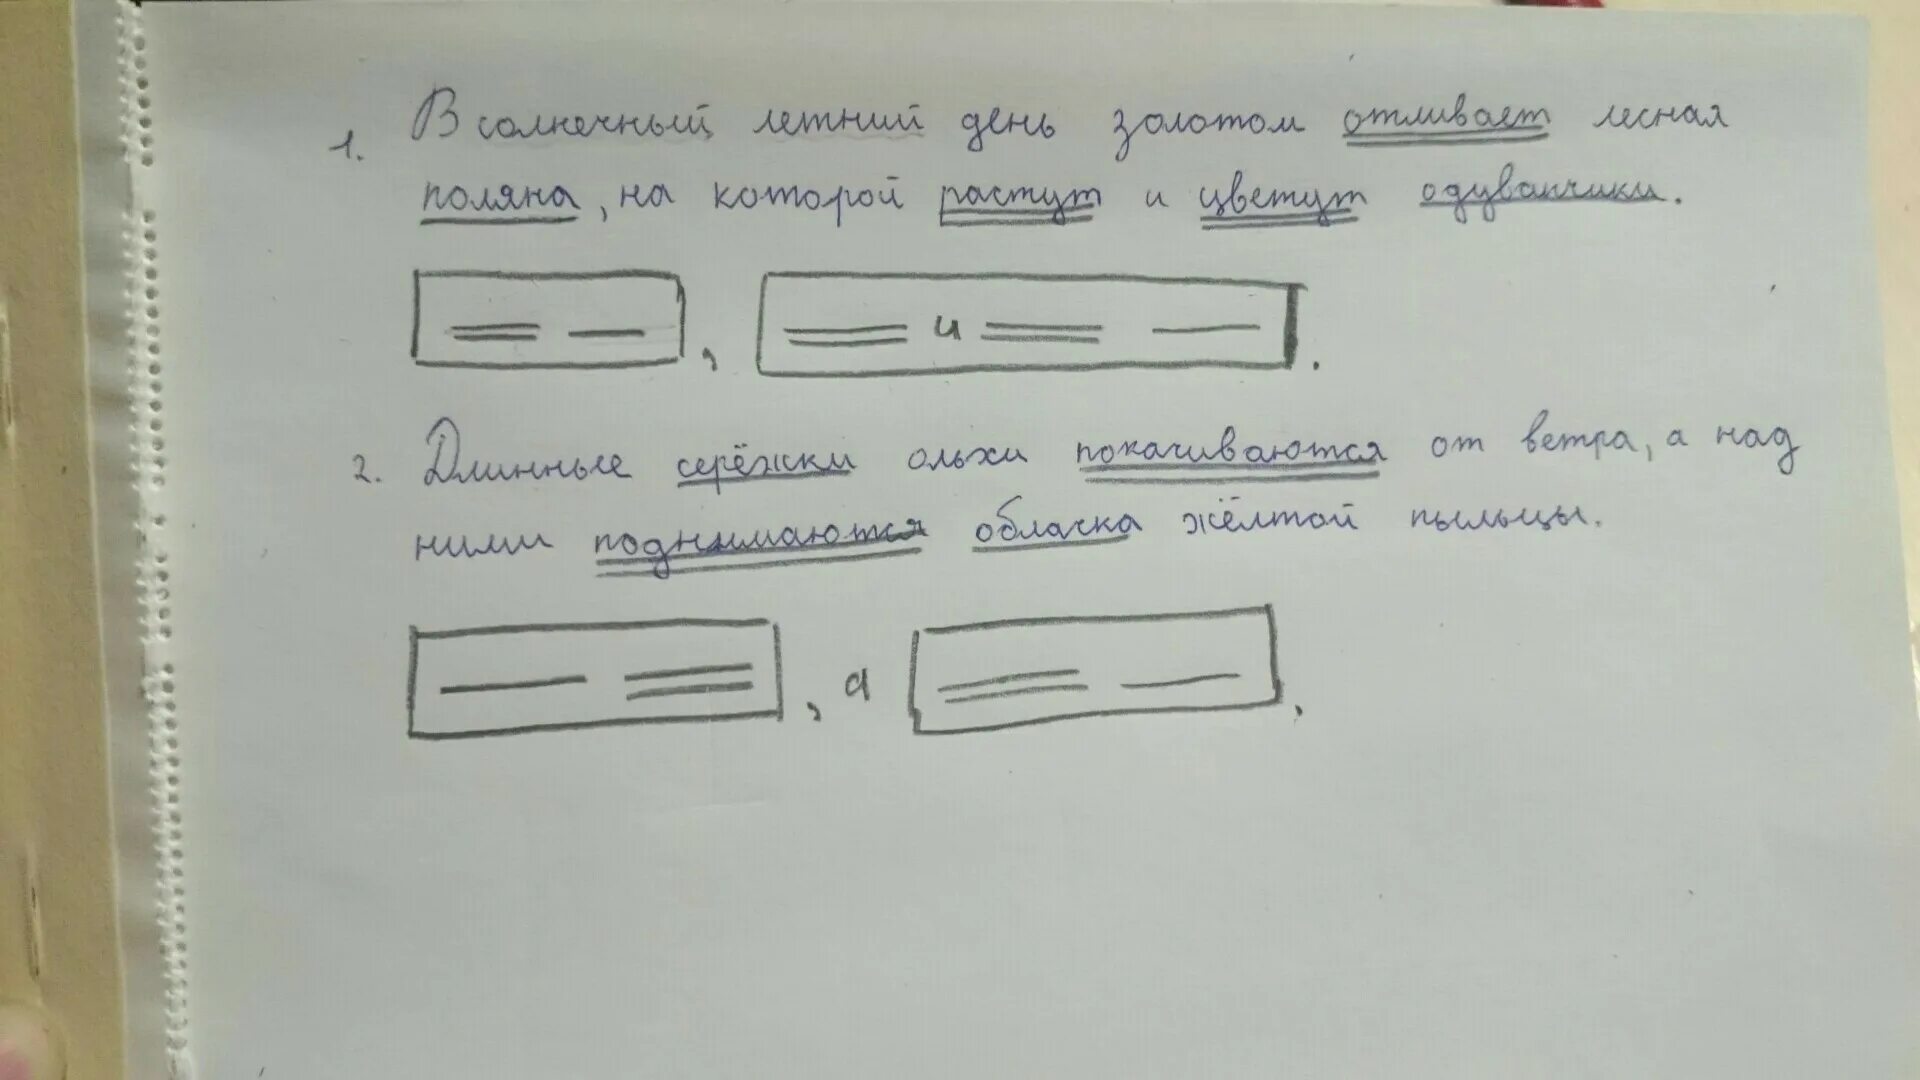 1. В солнечный летний день золотом отливает лесная
поляна, на которой растут и цветут одуванчики.
, и .
2. Длинные серёжки ольхи покачиваются от ветра, а над
ними поднимаются облачка жёлтой пыльцы.
, а .